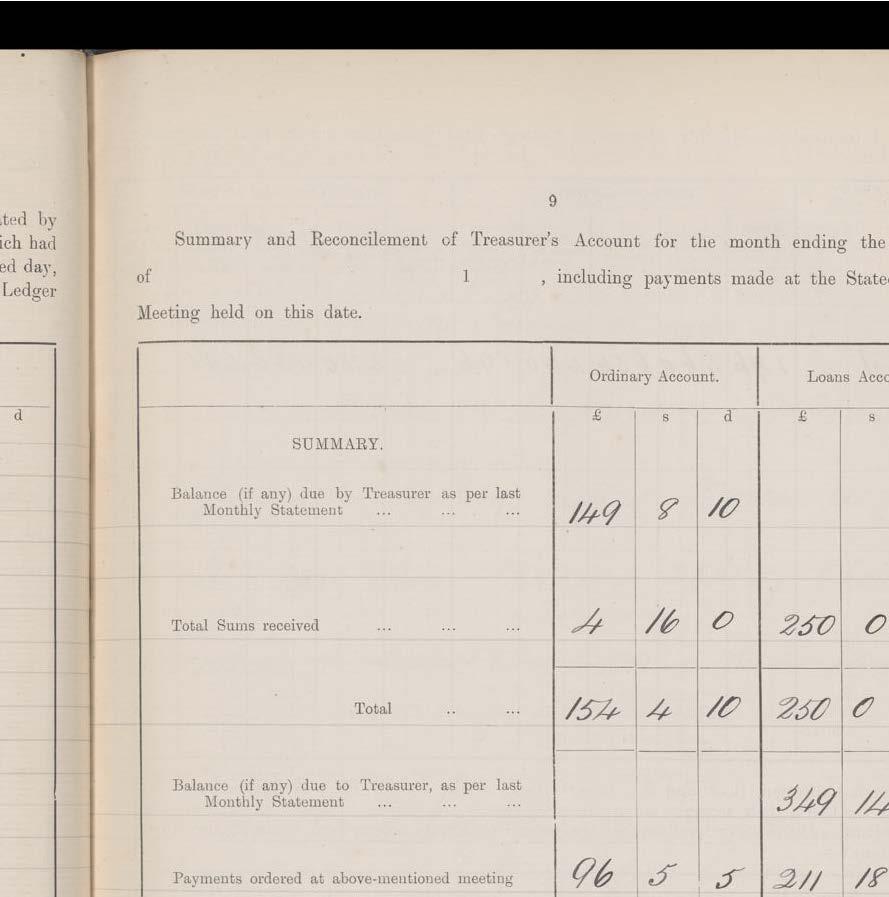 9
ted by
ich had
ed day,
Ledger
d
Summary and Reconcilement of Treasurer's Account for the month ending the
of 1 , including payments made at the State
Meeting held on this date.
Ordinary Account. Loans Acco
£ s d £ s
SUMMARY.
Balance (if any) due by Treasurer as per last
Monthly Statement ... ... ... 149 8 10
Total Sums received ... ... ... 4 16 0 250 0
Total .. ... 154 4 10 250 0
Balance (if any) due to Treasurer, as per last
Monthly Statement ... ... ... 349 14
Payments ordered at above-mentioned meeting 96 5 5 211 18